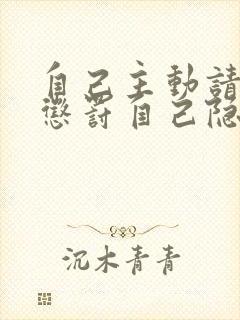 自己主動請
懲罰自己隐
沉木青青